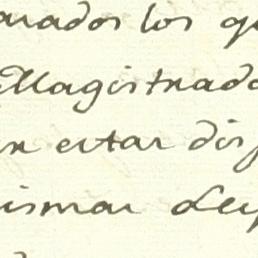 arados los q
Magistrado
n estar dis
ismas Ley